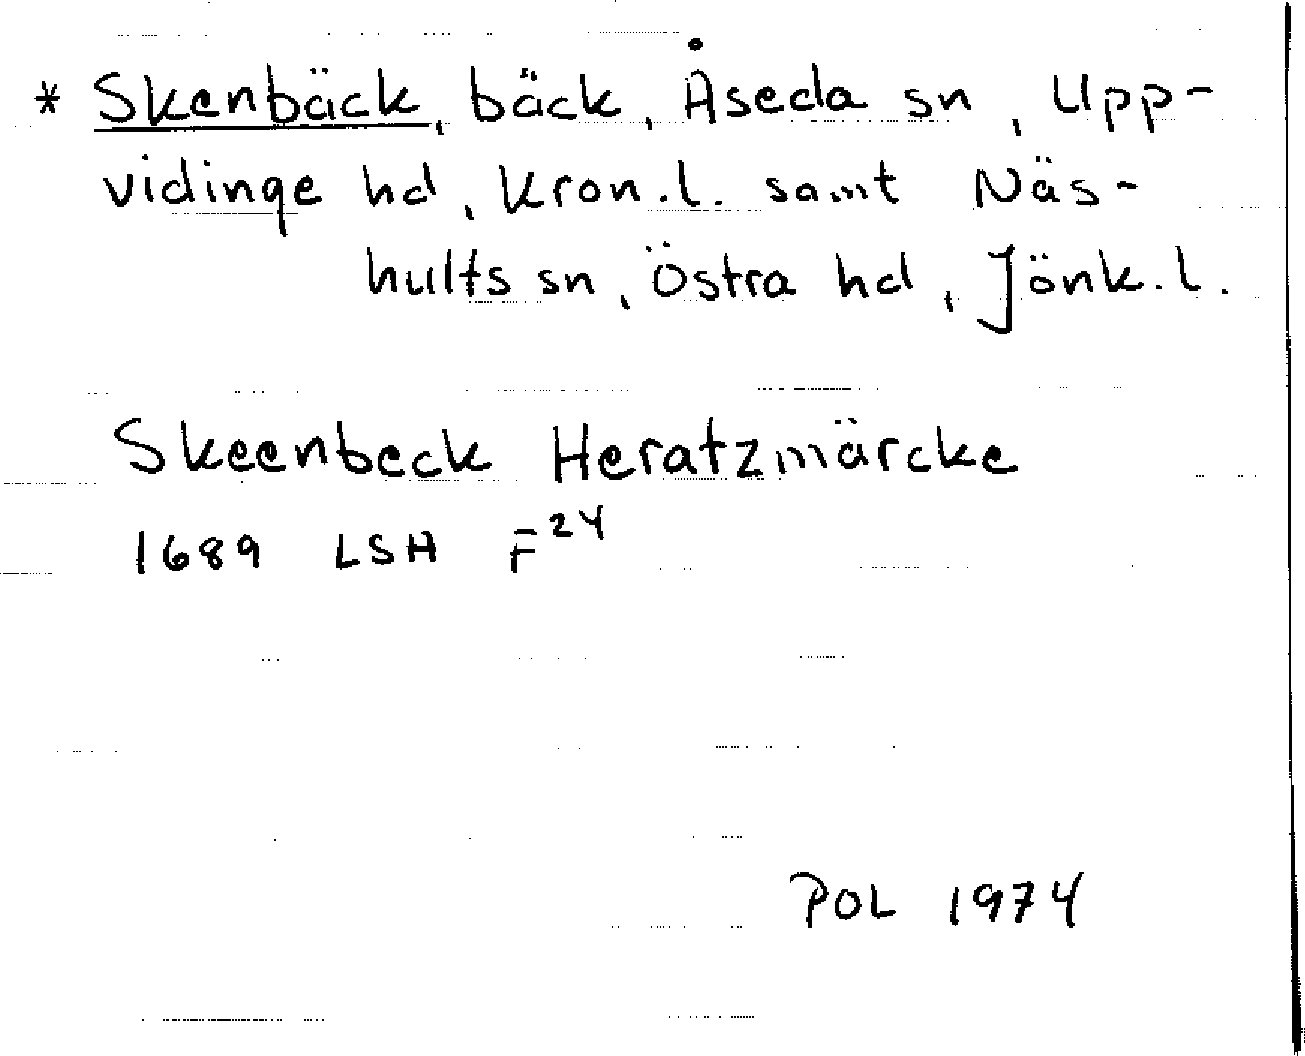 * Skenbäck, bäck, Åseda sn, Upp-
vidinge hd, Kron.l. samt Näs-
hults sn, Östra hd, Jönk.l.
Skeenbeck Heratzmärcke
1689 LSH F24
POL 1974